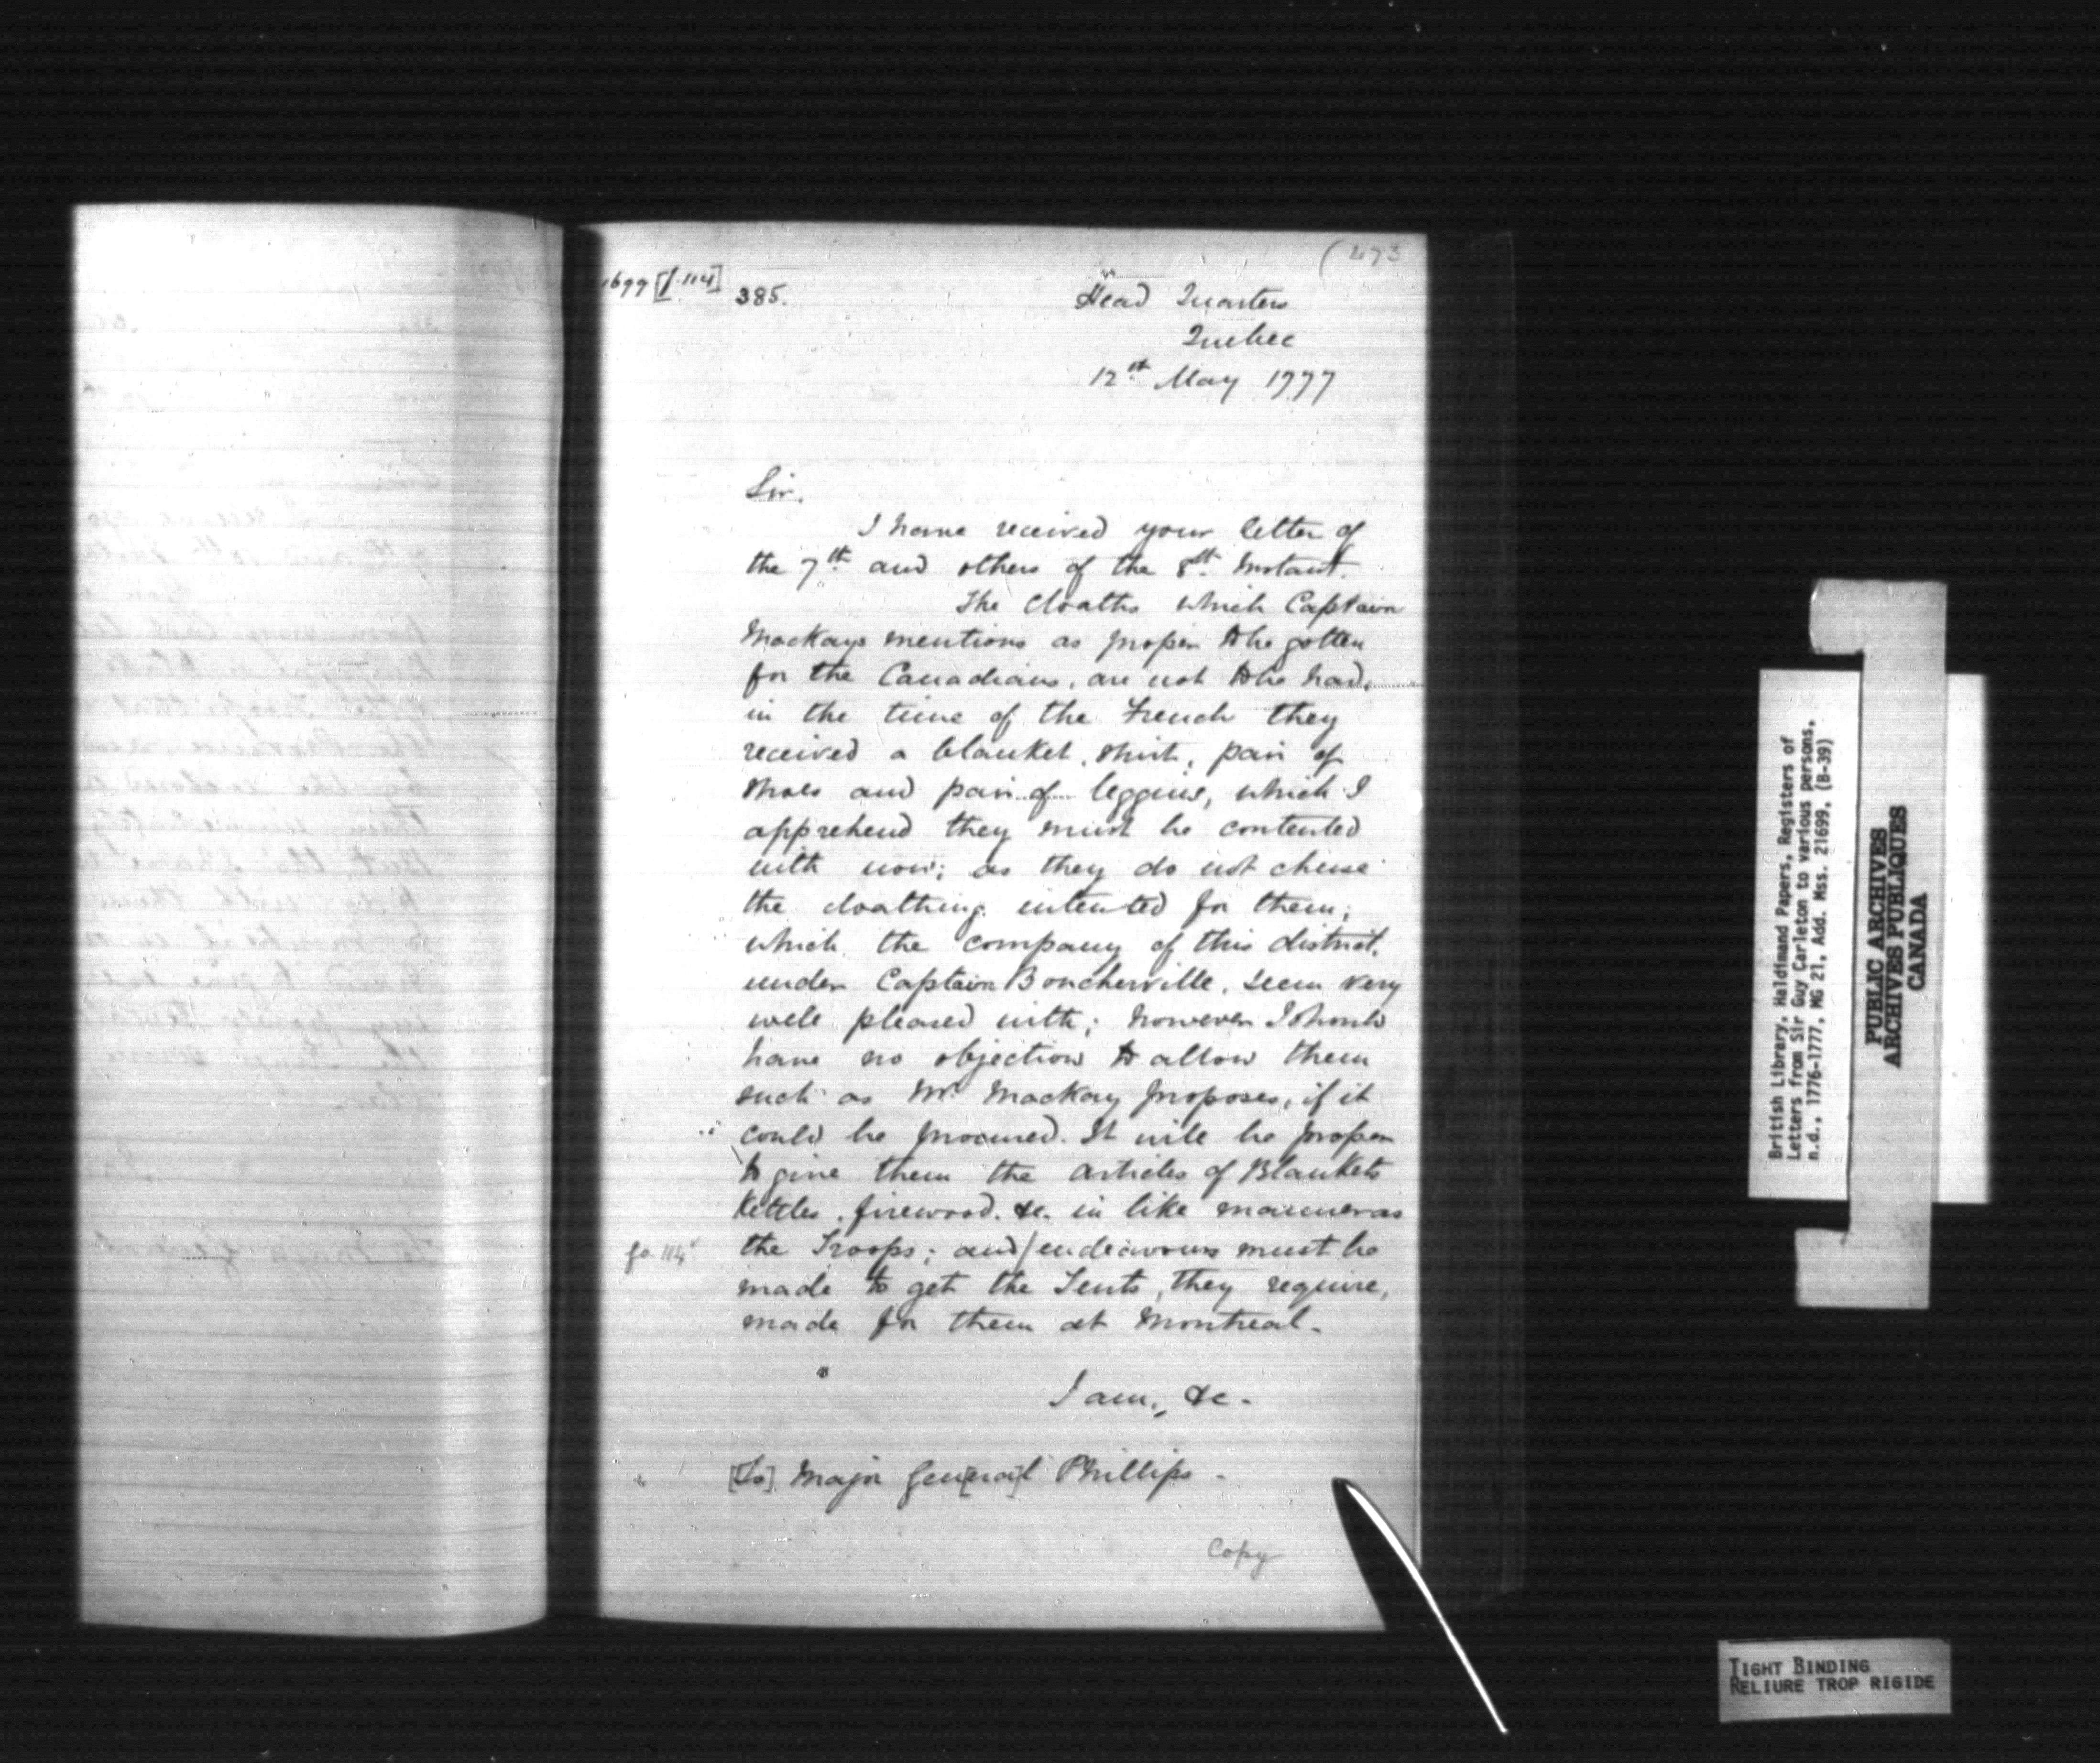 (273
1699 [f. 114]
385.
Head Quarters
Quebec
12th May 1777
Sir.
I have received your letter of
the 7th and others of the 8th Instant.
The cloaths which Captain
Mackays mentions as proper to be gotten
for the Canadians, are not to be had.
in the time of the French they
received a blanket, shirt, pair of
shoes and pair of leggins, which I
apprehend they must be contented
with now; as they do not chuse
the cloathing intented for them;
which the company of this district,
under Captain Boucherville, seem very
well pleased with; however I should
have no objection to allow them
such as Mr Mackay proposes, if it
could be procured. It will be proper
to give them the articles of Blankets
Kettles, firewood, &c. in like manner as
fo. 114v
the Troops; and/endeavours must be
made to get the Tents, they require,
made for them at Montreal.
I am, &c.
[To] Major Gen[era]l Phillips -
Copy
British Library, Haldimand Papers, Registers of
Letters from Sir Guy Carleton to various persons,
n.d., 1776-1777, MG 21, Add. Mss. 21699, (B-39)
PUBLIC ARCHIVES
ARCHIVES PUBLIQUES
CANADA
TIGHT BINDING
RELIURE TROP RIGIDE